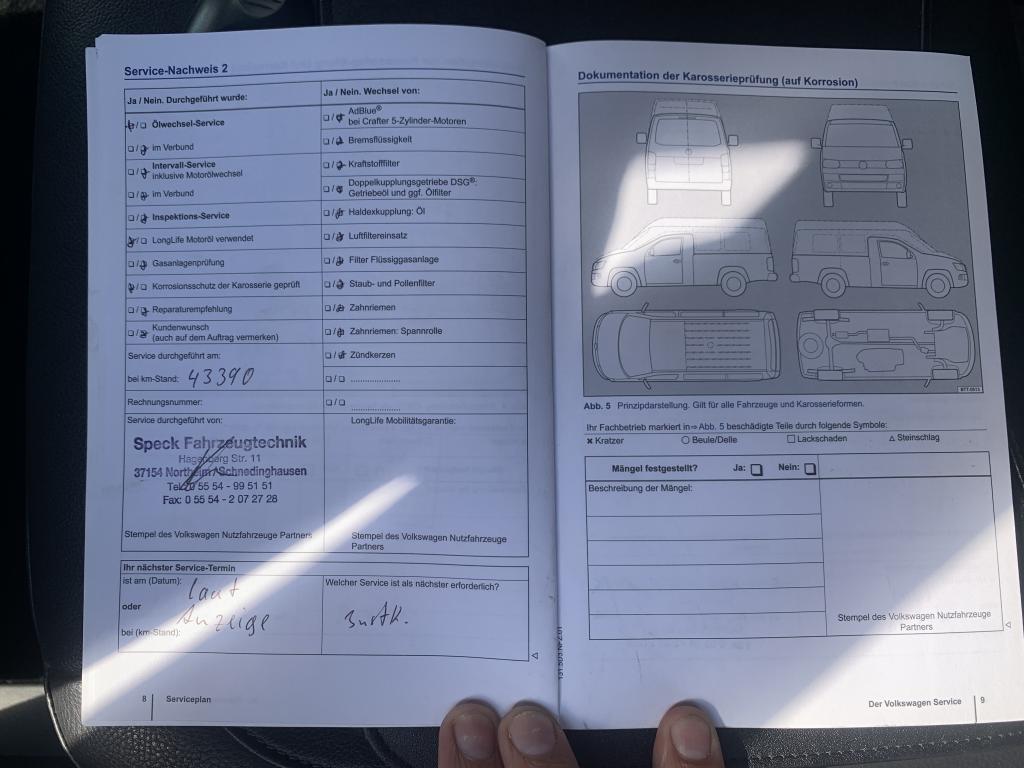 Service-Nachweis 2
Ja / Nein. Durchgeführt wurde:
Ölwechsel-Service
im Verbund
Intervall-Service
inklusive Motorölwechsel
im Verbund
Inspektions-Service
LongLife Motoröl verwendet
Gasanlagenprüfung
Korrosionsschutz der Karosserie geprüft
Reparaturempfehlung
Kundenwunsch
(auch auf dem Auftrag vermerken)
Service durchgeführt am:
bei km-Stand: 43390
Rechnungsnummer:
Service durchgeführt von:
Speck Fahrzeugtechnik
Hagenberg Str. 11
37154 Northeim/Schnedinghausen
Tel. 0 55 54 - 99 51 51
Fax: 0 55 54 - 2 07 27 28
Stempel des Volkswagen Nutzfahrzeuge Partners
Ja / Nein. Wechsel von:
AdBlue®
bei Crafter 5-Zylinder-Motoren
Bremsflüssigkeit
Kraftstofffilter
Doppelkupplungsgetriebe DSG®:
Getriebeöl und ggf. Ölfilter
Haldexkupplung: Öl
Luftfiltereinsatz
Filter Flüssiggasanlage
Staub- und Pollenfilter
Zahnriemen
Zahnriemen: Spannrolle
Zündkerzen
LongLife Mobilitätsgarantie:
Stempel des Volkswagen Nutzfahrzeuge
Partners
Ihr nächster Service-Termin
ist am (Datum): laut
oder Anzeige
bei (km-Stand):
Welcher Service ist als nächster erforderlich?
8 Serviceplan
Dokumentation der Karosserieprüfung (auf Korrosion)
Abb. 5 Prinzipdarstellung. Gilt für alle Fahrzeuge und Karosserieformen.
Ihr Fachbetrieb markiert in ⇒ Abb. 5 beschädigte Teile durch folgende Symbole:
× Kratzer ○ Beule/Delle □ Lackschaden △ Steinschlag
Mängel festgestellt? Ja: Nein:
Beschreibung der Mängel:
Stempel des Volkswagen Nutzfahrzeuge
Partners
Der Volkswagen Service 9